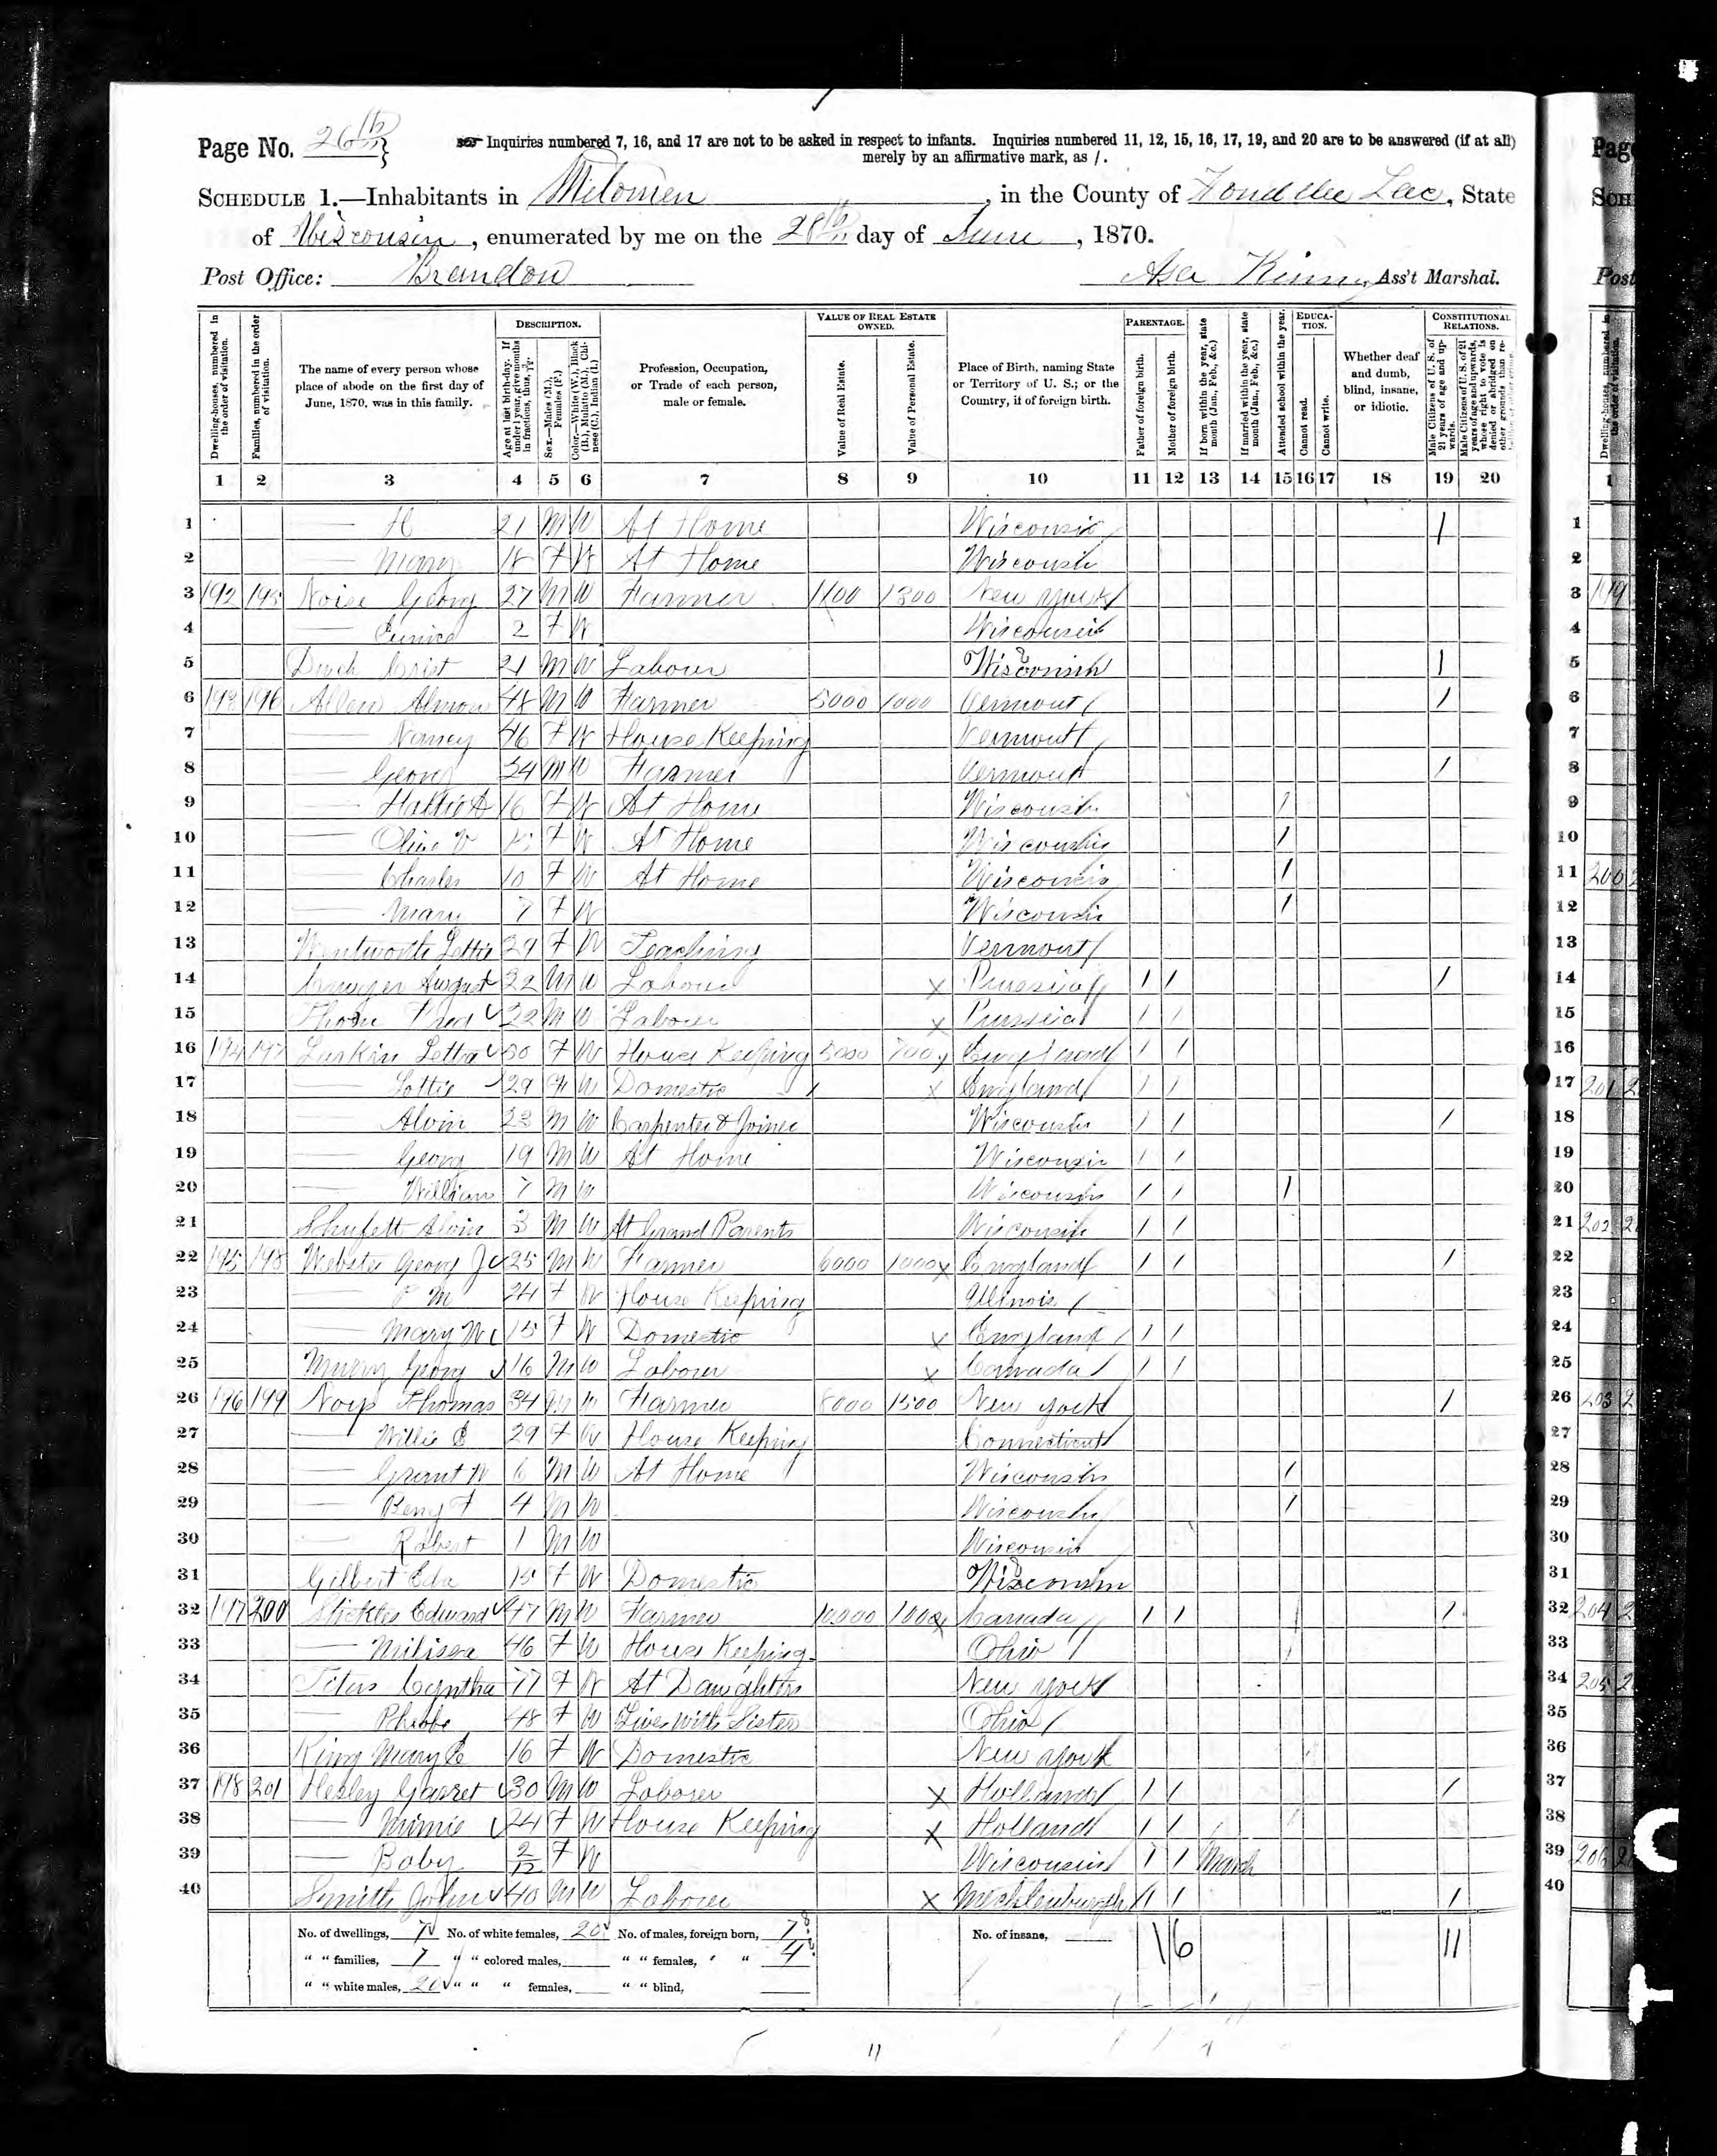 Page No. 26th
Inquiries numbered 7, 16, and 17 are not to be asked in respect to infants. Inquiries numbered 11, 12, 15, 16, 17, 19, and 20 are to be answered (if at all)
merely by an affirmative mark, as /.
SCHEDULE 1.—Inhabitants in Metomen, in the County of Fond du Lac, State
of Wisconsin, enumerated by me on the 28th day of June, 1870.
Post Office: Brandon
Asa Kinny, Ass't Marshal.
Dwelling-houses, numbered in the order of visitation.
Families, numbered in the order of visitation.
The name of every person whose place of abode on the first day of June, 1870, was in this family.
DESCRIPTION.
Age at last birth-day. If under 1 year, give months in fractions, thus,
Sex.—Males (M.), Females (F.)
Color.—White (W.), Black (B.), Mulatto (M.), Chinese (C.), Indian (I.)
Profession, Occupation, or Trade of each person, male or female.
VALUE OF REAL ESTATE OWNED.
Value of Real Estate.
Value of Personal Estate.
Place of Birth, naming State or Territory of U. S.; or the Country, if of foreign birth.
PARENTAGE.
Father of foreign birth.
Mother of foreign birth.
If born within the year, state month (Jan., Feb., &c.)
If married within the year, state month (Jan., Feb., &c.)
Attended school within the year.
EDUCATION.
Cannot read.
Cannot write.
Whether deaf and dumb, blind, insane, or idiotic.
CONSTITUTIONAL RELATIONS.
Male Citizens of U. S. of 21 years of age and upwards.
Male Citizens of U. S. of 21 years of age and upwards, whose right to vote is denied or abridged on other grounds than rebellion or other crime.
1 2 3 4 5 6 7 8 9 10 11 12 13 14 15 16 17 18 19 20
1 — H 21 M W At Home Wisconsin /
2 — Mary 18 F W At Home Wisconsin
3 192 195 Georg 27 M W Farmer 1100 1300 New York
4 — Eunice 2 F W Wisconsin
5 21 M W Labourer Wisconsin /
6 193 196 Allen Almon 48 M W Farmer 5000 1000 Vermont /
7 — Nancy 46 F W House Keeping Vermont
8 — Georg 24 M W Farmer Vermont /
9 — Hattie A 16 F W At Home Wisconsin /
10 — Olive V F W At Home Wisconsin /
11 — Charles 10 F W At Home Wisconsin /
12 — Mary 7 F W Wisconsin /
13 Wentworth Lettie 29 F W Teaching Vermont
14 August 22 M W Labourer x Prussia / / /
15 Fred 22 M W Labourer x Prussia / /
16 194 197 Larkin Letta 50 F W House Keeping 5000 700 x England / /
17 — Lottie 29 W Domestic x England / /
18 — Alvin 23 M W Carpenter & Joiner Wisconsin / / /
19 — Georg 19 M W At Home Wisconsin / /
20 — William 7 M W Wisconsin / / /
21 Shufelt Alvin 3 M W At Grand Parents Wisconsin / /
22 195 198 Webster Georg J 25 M W Farmer 6000 1000 x England / / /
23 — M 24 F W House Keeping Illinois
24 — Mary M 15 F W Domestic x England / /
25 Murry Georg 16 M W Labourer x Canada / /
26 196 199 Thomas 34 M W Farmer 8000 1500 New York /
27 — Willie E 29 F W House Keeping Connecticut
28 — Grant W 6 M W At Home Wisconsin /
29 — Benj F 4 M W Wisconsin /
30 — Robert 1 M W Wisconsin
31 Gilbert Eda 15 F W Domestic Wisconsin
32 197 200 Stickles Edward 47 M W Farmer 10000 1000 x Canada / / /
33 — Milissa 46 F W House Keeping Ohio
34 Titus Cyntha 77 F W At Daughters New York
35 — Phebe 48 F W Lives with Sister Ohio
36 King Mary E 16 F W Domestic New York
37 198 201 Hesley Garret 30 M W Laborer x Holland / / /
38 — Minnie 24 F W House Keeping x Holland / /
39 — Baby 2/12 F W Wisconsin / / March
40 Smith John 40 M W Laborer x Mecklenburgh / / /
No. of dwellings, 7 No. of white females, 20 No. of males, foreign born, 7 No. of insane, 16 11
" " families, 7 " " colored males, " " females, " " 4
" " white males, 20 " " " females, " " blind,
11